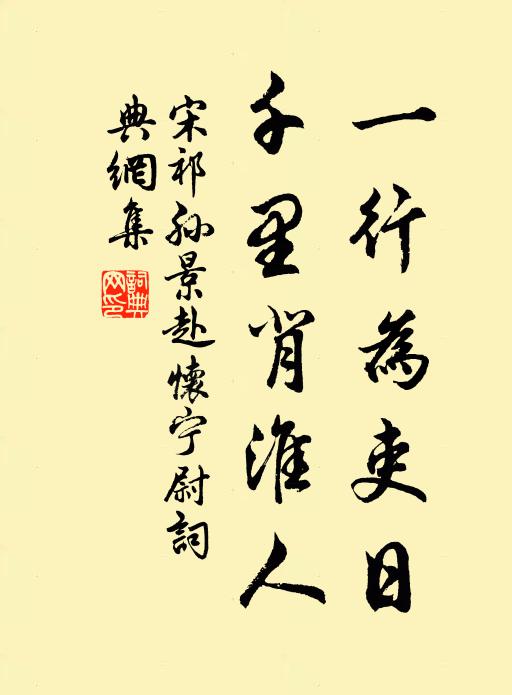 一行為吏日
千里背淮人
宋祁孫景赴懷宁尉詞
典網集
詞典
網印